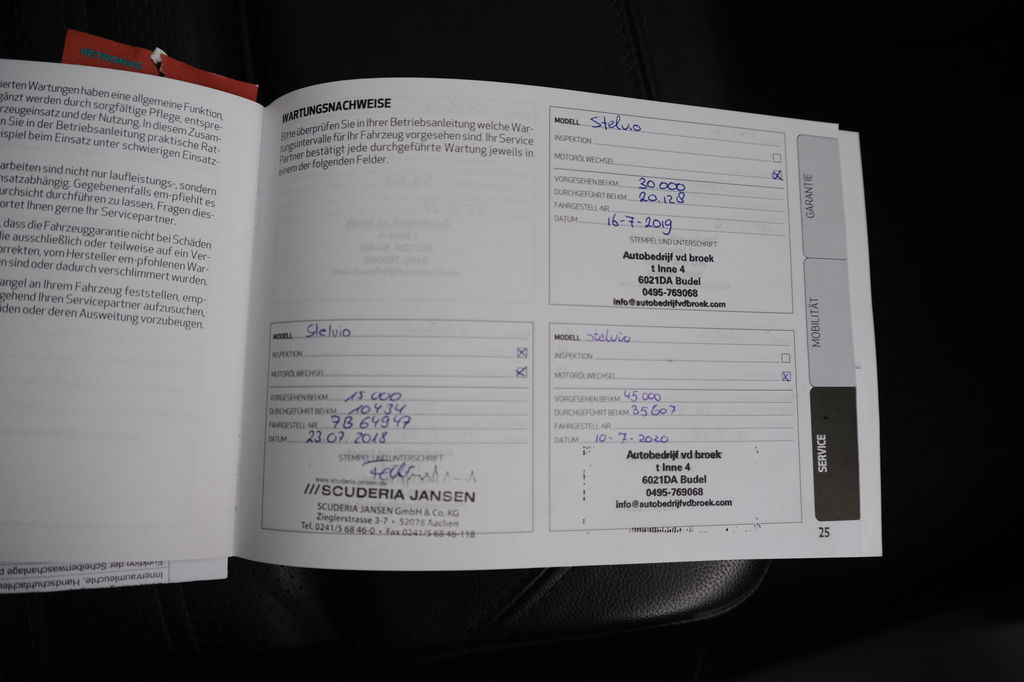 PETRONAS
ierten Wartungen haben eine allgemeine Funktion,
gänzt werden durch sorgfältige Pflege, entspre-
rzeugeinsatz und der Nutzung. In diesem Zusam-
n Sie in der Betriebsanleitung praktische Rat-
ispiel beim Einsatz unter schwierigen Einsatz-
arbeiten sind nicht nur laufleistungs-, sondern
nsatzabhängig. Gegebenenfalls em-pfiehlt es
urchsicht durchführen zu lassen. Fragen dies-
ortet Ihnen gerne Ihr Servicepartner.
, dass die Fahrzeuggarantie nicht bei Schäden
lie ausschließlich oder teilweise auf ein Ver-
orrekten, vom Hersteller em-pfohlenen War-
n sind oder dadurch verschlimmert wurden.
angel an Ihrem Fahrzeug feststellen, emp-
gehend Ihren Servicepartner aufzusuchen,
iden oder deren Ausweitung vorzubeugen.
Funktion der Scheibenwaschanlage p
Innenraumleuchte, Handschuhfachleu
WARTUNGSNACHWEISE
Bitte überprüfen Sie in Ihrer Betriebsanleitung welche War-
tungsintervalle für Ihr Fahrzeug vorgesehen sind. Ihr Service
Partner bestätigt jede durchgeführte Wartung jeweils in
einem der folgenden Felder.
MODELL Stelvio
INSPEKTION
MOTORÖLWECHSEL
VORGESEHEN BEI KM 30.000
DURCHGEFÜHRT BEI KM 20.128
FAHRGESTELL-NR.
DATUM 16-7-2019
STEMPEL UND UNTERSCHRIFT
Autobedrijf vd broek
t Inne 4
6021DA Budel
0495-769068
info@autobedrijfvdbroek.com
MODELL Stelvio
INSPEKTION
MOTORÖLWECHSEL
VORGESEHEN BEI KM 15 000
DURCHGEFÜHRT BEI KM 10434
FAHRGESTELL-NR. 7B 64947
DATUM 23.07.2018
STEMPEL UND UNTERSCHRIFT
www.scuderia-jansen.de
///SCUDERIA JANSEN
SCUDERIA JANSEN GmbH & Co. KG
Zieglerstrasse 3-7 • 52078 Aachen
Tel. 0241/5 68 46-0 • Fax 0241/5 68 46-118
MODELL Stelvio
INSPEKTION
MOTORÖLWECHSEL
VORGESEHEN BEI KM 45 000
DURCHGEFÜHRT BEI KM 35607
FAHRGESTELL-NR.
DATUM 10-7-2020
Autobedrijf vd broek
t Inne 4
6021DA Budel
0495-769068
info@autobedrijfvdbroek.com
GARANTIE
MOBILITÄT
SERVICE
25